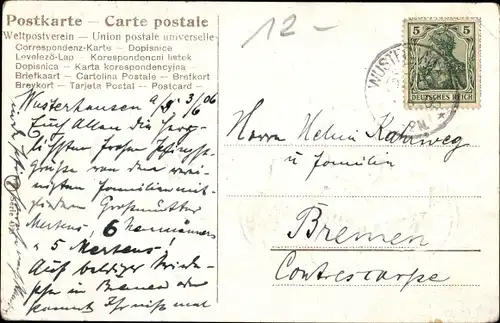 Postkarte – Carte postale
Weltpostverein – Union postale universelle
Correspondenz-Karte – Dopisnice
Levelező-Lap – Korespondencni listek
Dopisnica – Karta korespondencyjna –
Briefkaart – Cartolina Postale – Brefkort
Breykort – Tarjeta Postal – Postcard –
12 –
5 5
DEUTSCHES REICH
WUSTE
PM
Wusterhausen a/D 3/6 06
Euch Allen die herz-
lichsten frohen Pfingst-
Grüße von den verei-
nigten Familienmit-
gliedern Großmutter
Mertens, 6
5 Mertens!
Auf baldiges Wiede-
in Bremen
kommt Ihr
Herrn Kahrweg
u Familien
Bremen
Contrescarpe